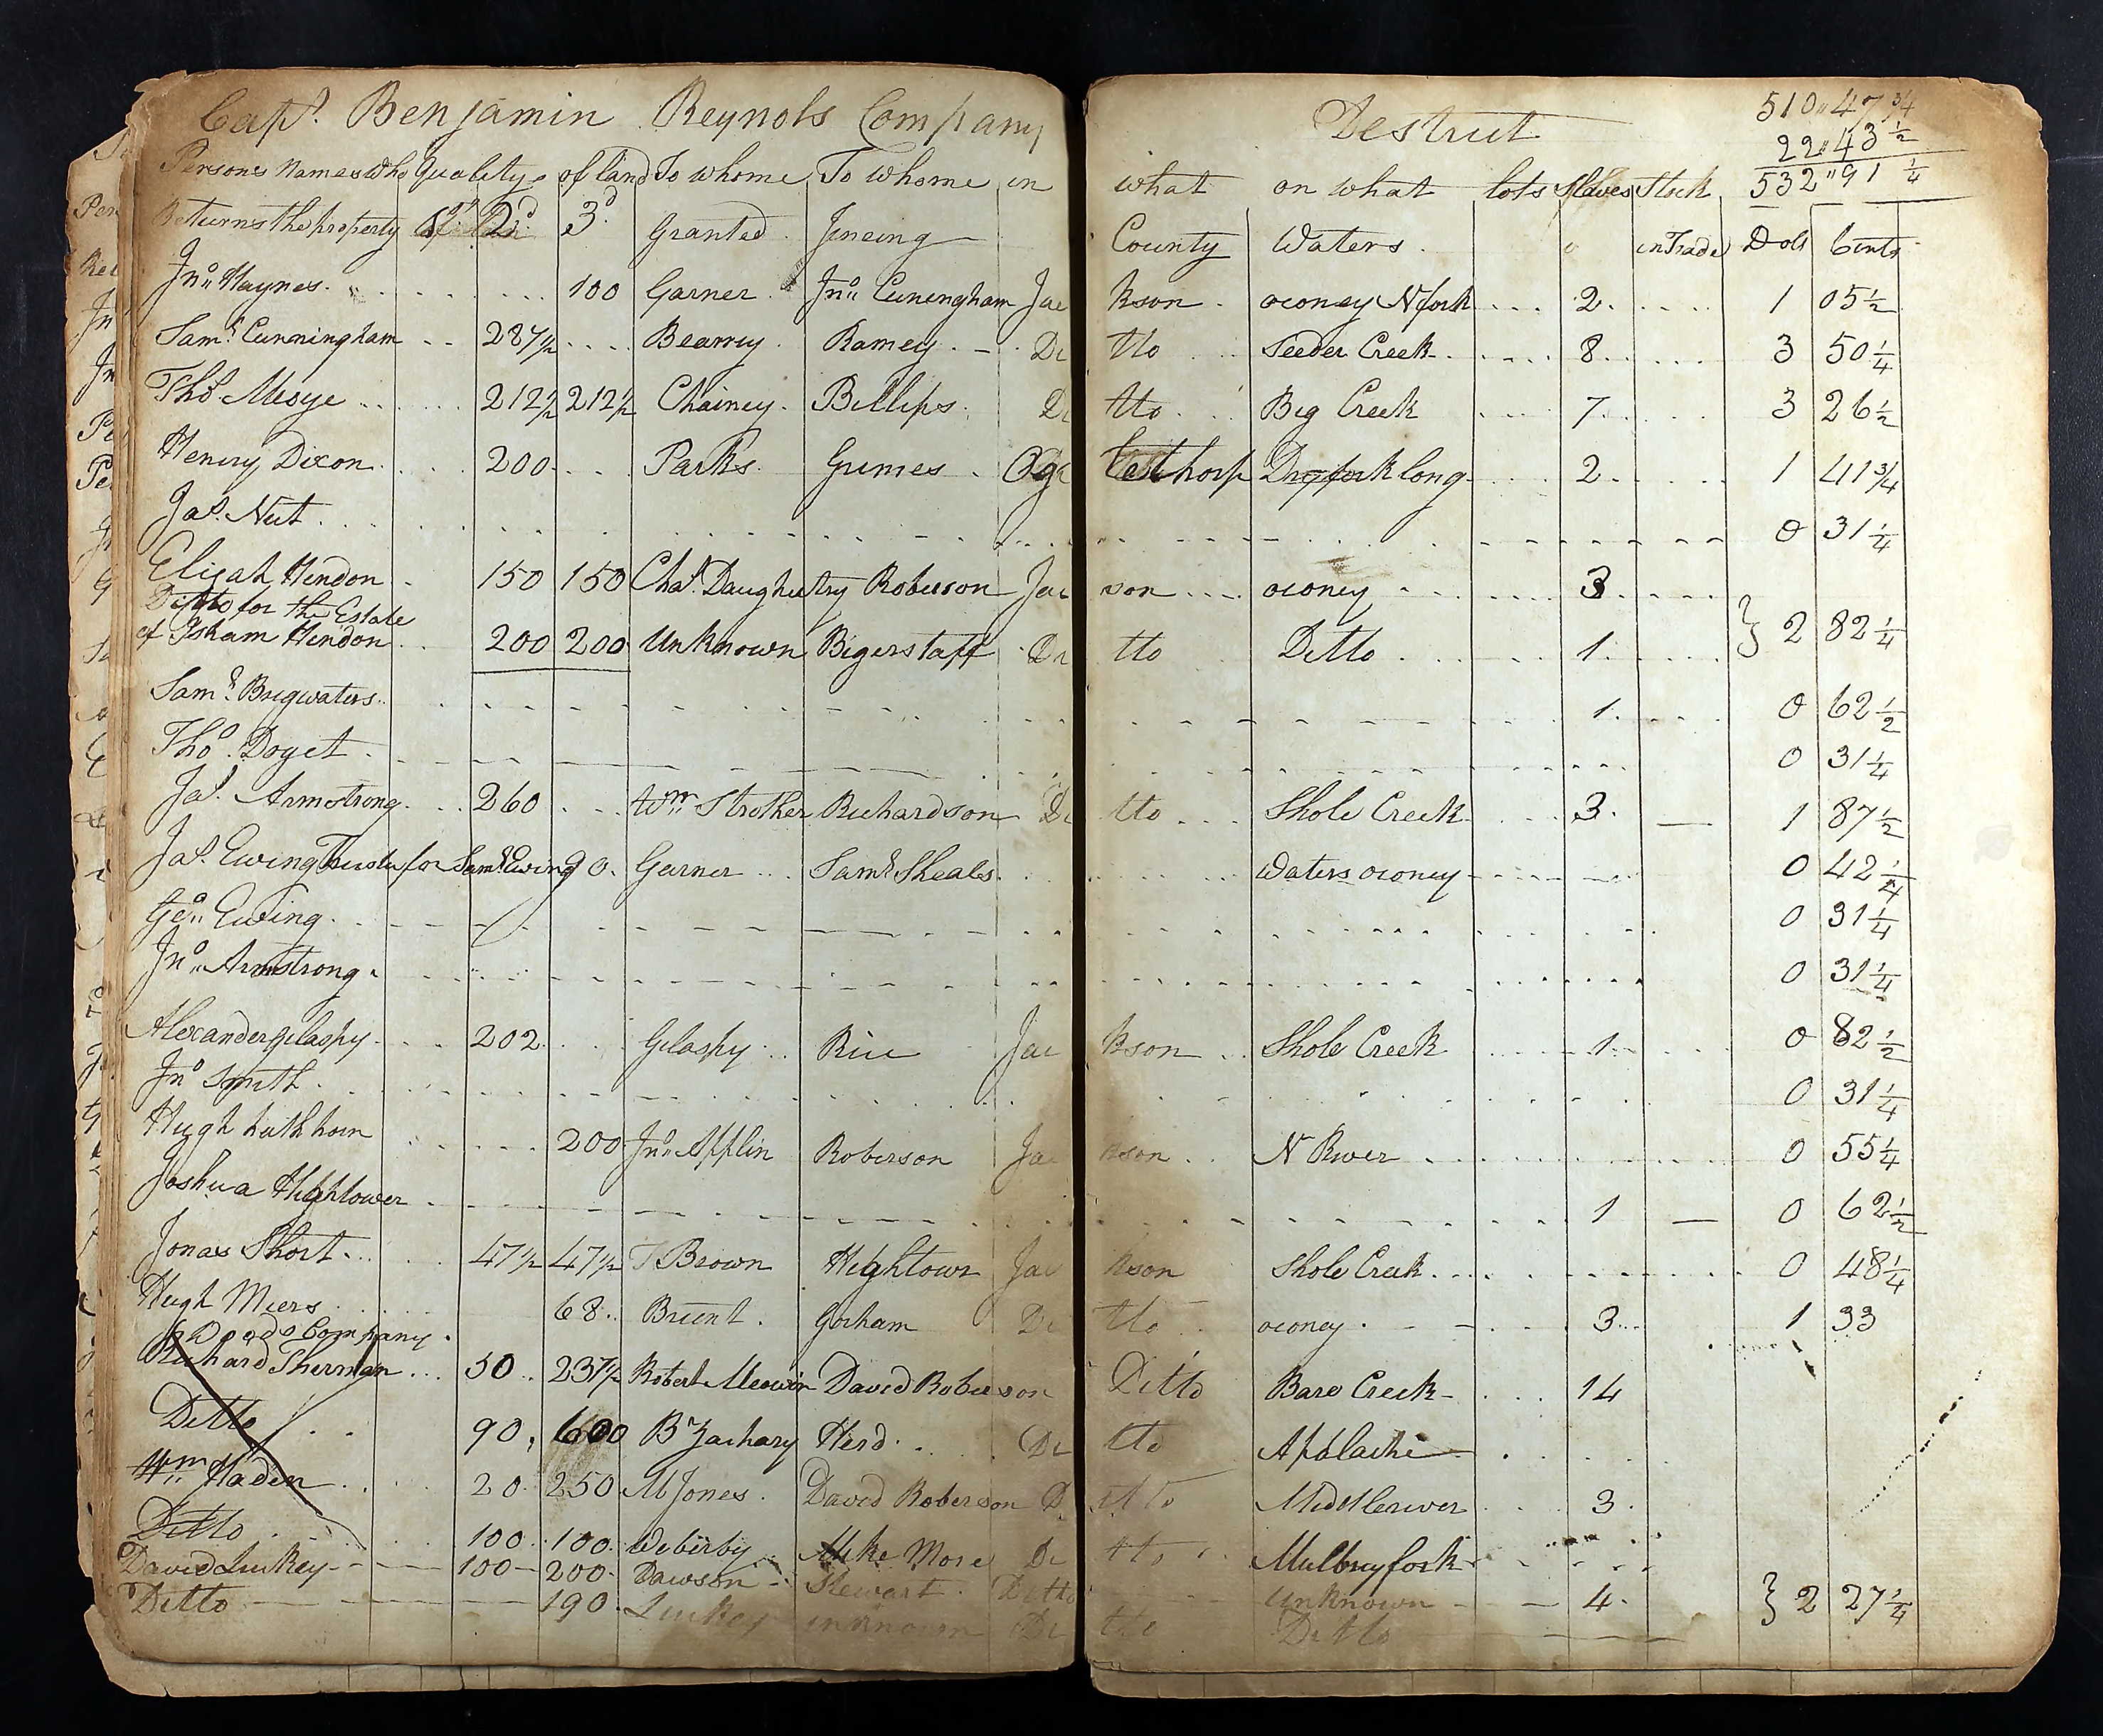 Capt. Benjamin Reynols Company Destrict 510"47 3/4
22"43 1/2
532"91 1/4
Persons Names Who Quality of land To whome To whome in what on what lots Slaves Stock
Returns the property 1st 2d 3d Granted Joneing County Waters in Trade Dols Cents
Jno Haynes 100 Garner Jno Cuningham Jackson oconey N fork 2 1 05 1/2
Saml Cunningham 287 1/2 Bearrey Ramey Ditto Seeder Creek 8 3 50 1/4
Thos Mesye 212 1/2 212 1/2 Chainey Billips Ditto Big Creek 7 3 26 1/2
Henry Dixon 200 Parks Grimes Oglethorp Dry fork long 2 1 41 3/4
Jas Nut 0 31 1/4
Elijah Hendon 150 150 Chas Daughertry Roberson Jacson oconey 3
Ditto for the Estate
of Isham Hendon 200 200 Unknown Bigerstaff Ditto Ditto 1 } 2 82 1/4
Saml Brigwaters 1 0 62 1/2
Tho Doget 0 31 1/4
Jas Armstrong 260 Wm Strother Richardson Ditto Shole Creek 3 1 87 1/2
Jas Ewing Trustee for Saml Ewing 90 Garner Saml Sheals Waters oconey 0 42 1/4
Geo Ewing 0 31 1/4
Jno Armstrong 0 31 1/4
Alexander gilaspy 202 Gilaspy Rice Jackson Shole Creek 1 0 82 1/2
Jno Smith 0 31 1/4
Hugh hathhorn 200 Jno Applin Roberson Jackson N River 0 55 1/4
Joshua Hightower 1 0 62 1/2
Jonas Short 47 1/2 47 1/2 T Brown Hightowr Jackson Shole Creek 0 48 1/4
Hugh Miers 68 Brient Gorham Ditto oconey 3 1 33
Dodds Company
Richard Therman 50 237 1/2 Robert David Roberson Ditto Bare Creek 14
Ditto 90 600 B Zachary Herd Ditto Apalache
Wm Haden 20 250 M Jones David Roberson Ditto Middleriver 3
Ditto 100 100 Weberby Mike More Ditto Mulbryfork
David Luckey 100 200 Dawson Stewart Ditto unknown 4 } 2 27 1/4
Ditto 190 Luckey unknown Ditto Ditto